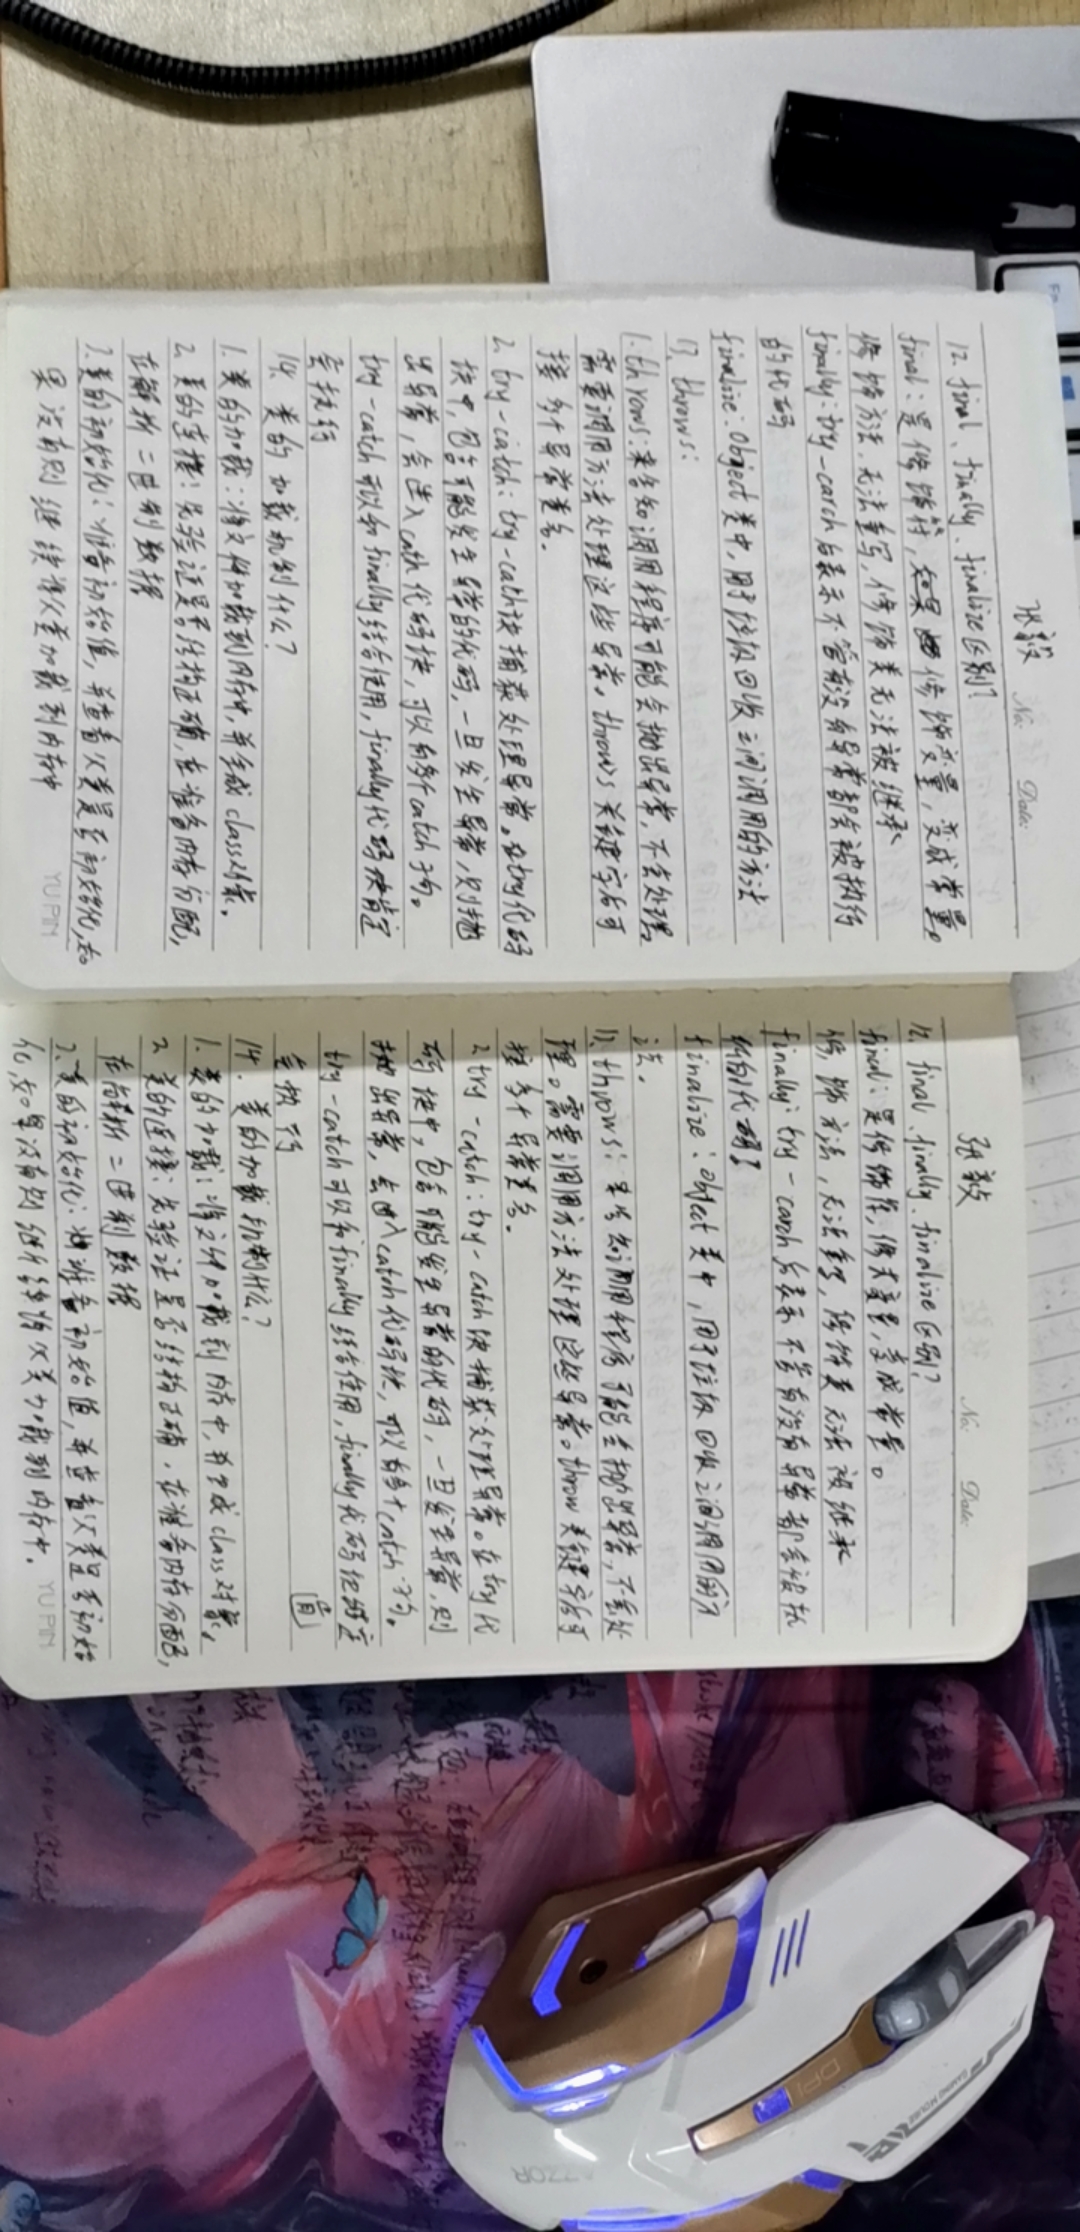 张毅
No. Date:
12. final、finally、finalize区别?
final:是修饰符,如果修饰变量,变成常量。
修饰方法,无法重写,修饰类无法被继承
finally:try-carch后表示不管有没有异常都会被执行
的代码
finalize:Object类中,用于垃圾回收之间调用的方法
13. throws:
1. throws:来告知调用程序可能会抛出异常,不去处理。
需要调用方法处理这些异常。throws关键字后可
接多个异常类名.
2. try-catch:try-catch块捕获处理异常。在try代码
块中,包含可能发生异常的代码,一旦发生异常,则抛
出异常,会进入cath代码块,可以有多个catch子句。
try-catch可以和finally结合使用,finally代码块肯定
会执行
类的加载机制什么?
1. 类的加载:将文件加载到内存中,并生成class对象。
2. 类的连接:先验证是否结构正确,在准备内存分配,
在解析二进制数据
3. 类的初始化:准备初始值,并查看父类是否初始化,如
果没有则继续将父类加载到内存中
YU PIN
张毅
No. Date:
12. final、finally、finalize区别?
final:是修饰符,修饰变量,变成常量。
修饰方法,无法重写,修饰类无法被继承
finally:try-carch后表示不管有没有异常都会被执
行的代码
finalize:Object类中,用于垃圾回收之间调用的方
法.
13. throws:来告知调用程序可能会抛出异常,不去处
理。需要调用方法处理这些异常。throw关键字后可
接多个异常类名.
2. try-catch:try-catch块捕获处理异常。在try代
码块中,包含可能发生异常的代码,一旦发生异常,则
抛出异常,会进入catch代码块,可以有多个catch子句。
try-catch可以和finally结合使用,finally代码块肯定
会执行
14. 类的加载机制什么?
1. 类的加载:将文件加载到内存中,并生成class对象。
2. 类的连接:先验证是否结构正确,在准备内存分配,
在解析二进制数据
3. 类的初始化:准备初始值,并查看父类是否初始
化,如果没有则继续将父类加载到内存中.
YU PIN
DPI
GAMING MOUSE
AZZOR